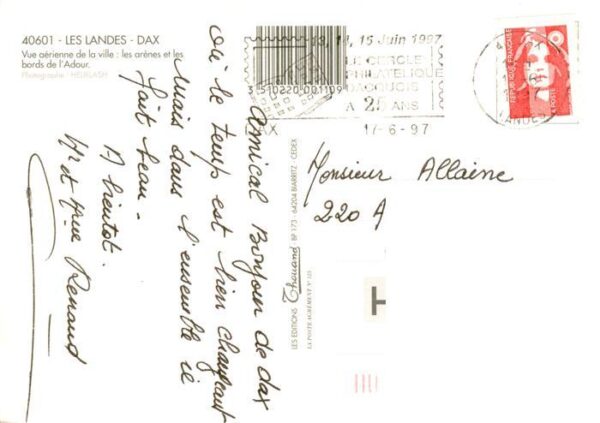 40601 - LES LANDES - DAX
Vue aérienne de la ville : les arènes et les
bords de l'Adour.
Photographe : HELIFLASH
3 510220 001109
13, 14, 15 Juin 1997
LE CERCLE
PHILATELIQUE
DACQUOIS
A 25 ANS
DAX
17-6-97
REPUBLIQUE FRANÇAISE
LA POSTE
LANDES
Amical Bonjour de dax
où le temps est bien changeant
mais dans l'ensemble il
fait beau.
A bientôt.
Mr et Mme Renaud
LES EDITIONS Thouand BP 173 - 64204 BIARRITZ - CEDEX
LA POSTE AGRÉMENT N° 325
Monsieur Allaine
220 A